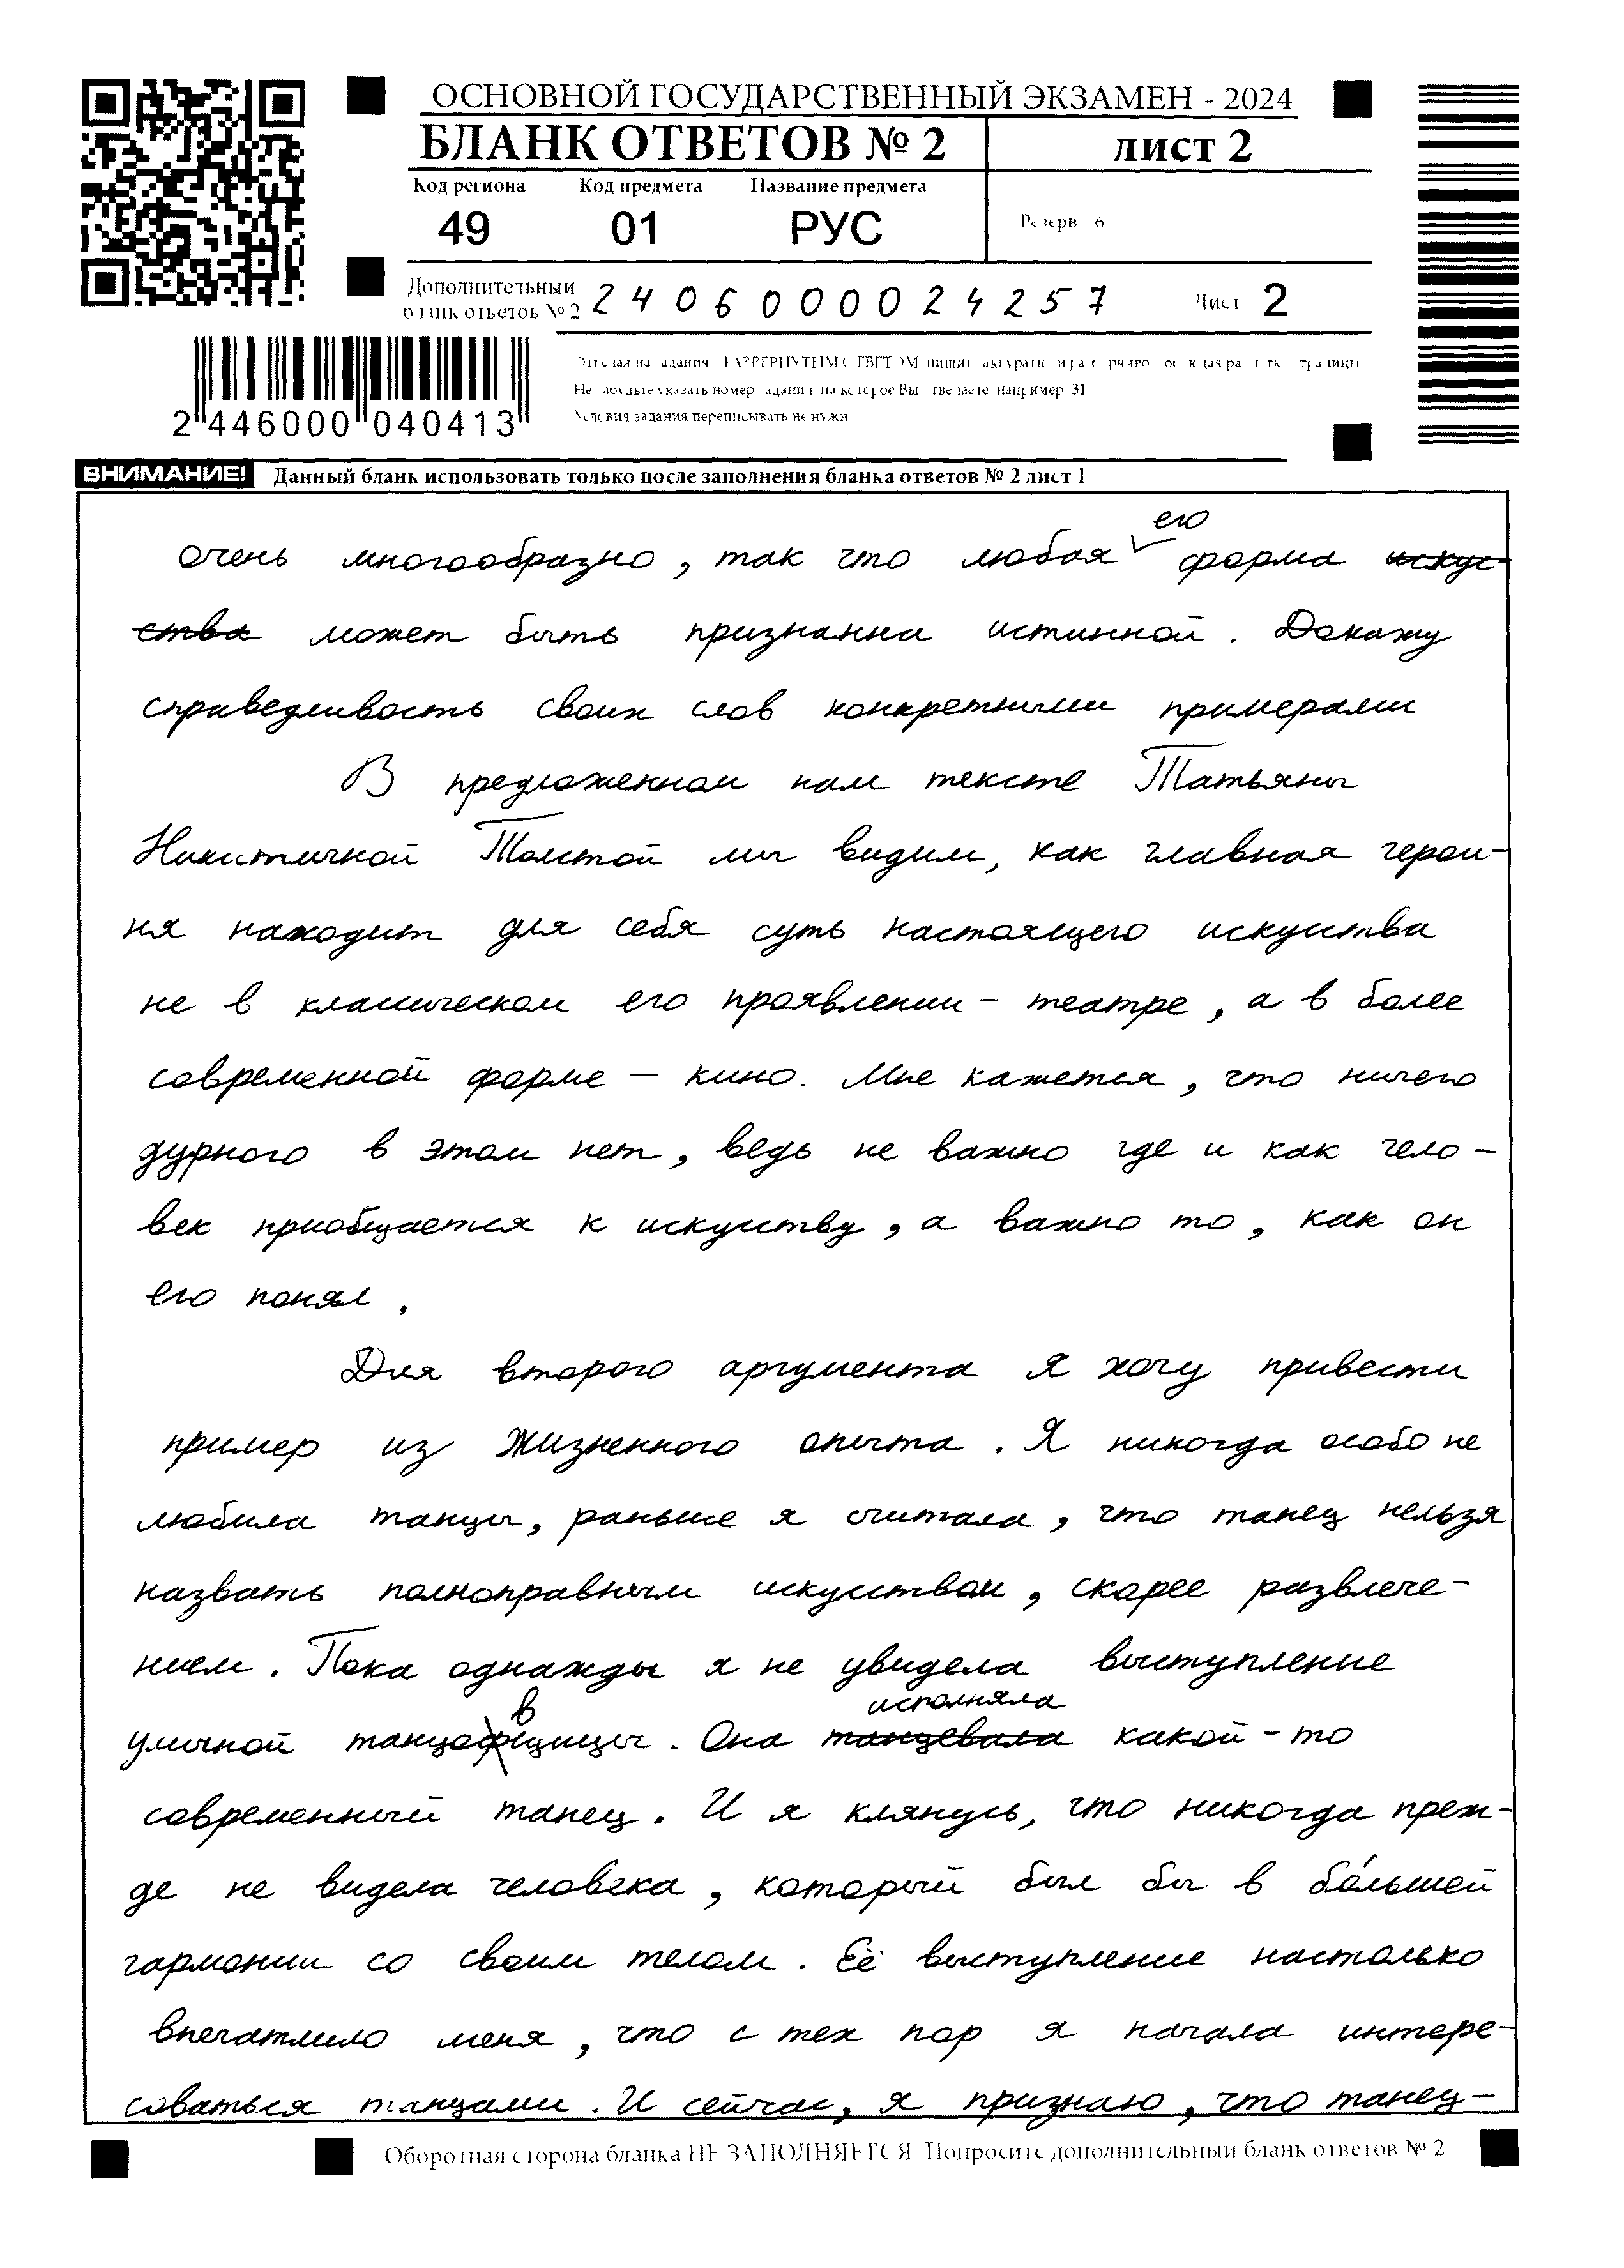 ОСНОВНОЙ ГОСУДАРСТВЕННЫЙ ЭКЗАМЕН - 2024
БЛАНК ОТВЕТОВ № 2 лист 2
Код региона Код предмета Название предмета
49 01 РУС Резерв 6
Дополнительный
бланк ответов № 2 2406000024257 Лист 2
Не забудьте указать номер задания на которое Вы отвечаете например 31
Условия задания переписывать не нужно
2 446000 040413
ВНИМАНИЕ! Данный бланк использовать только после заполнения бланка ответов № 2 лист 1
его
очень многообразно, так что любая форма искус-
ства может быть признанна истинной. Докажу
справедливость своих слов конкретными примерами
В предложенном нам тексте Татьяны
Никитичной Толстой мы видим, как главная герои-
ня находит для себя суть настоящего искусства
не в классическом его проявлении - театре, а в более
современной форме - кино. Мне кажется, что ничего
дурного в этом нет, ведь не важно где и как чело-
век приобщается к искусству, а важно то, как он
его понял.
Для второго аргумента я хочу привести
пример из жизненного опыта. Я никогда особо не
любила танцы, раньше я считала, что танец нельзя
назвать полноправным искусством, скорее развлече-
нием. Пока однажды я не увидела выступление
в исполняла
уличной танцофщицы. Она танцевала какой-то
современный танец. И я клянусь, что никогда преж-
де не видела человека, который был бы в бо́льшей
гармонии со своим телом. Её выступление настолько
впечатлило меня, что с тех пор я начала интере-
соваться танцами. И сейчас, я признаю, что танец-
Оборотная сторона бланка НЕ ЗАПОЛНЯЕТСЯ Попросите дополнительный бланк ответов № 2